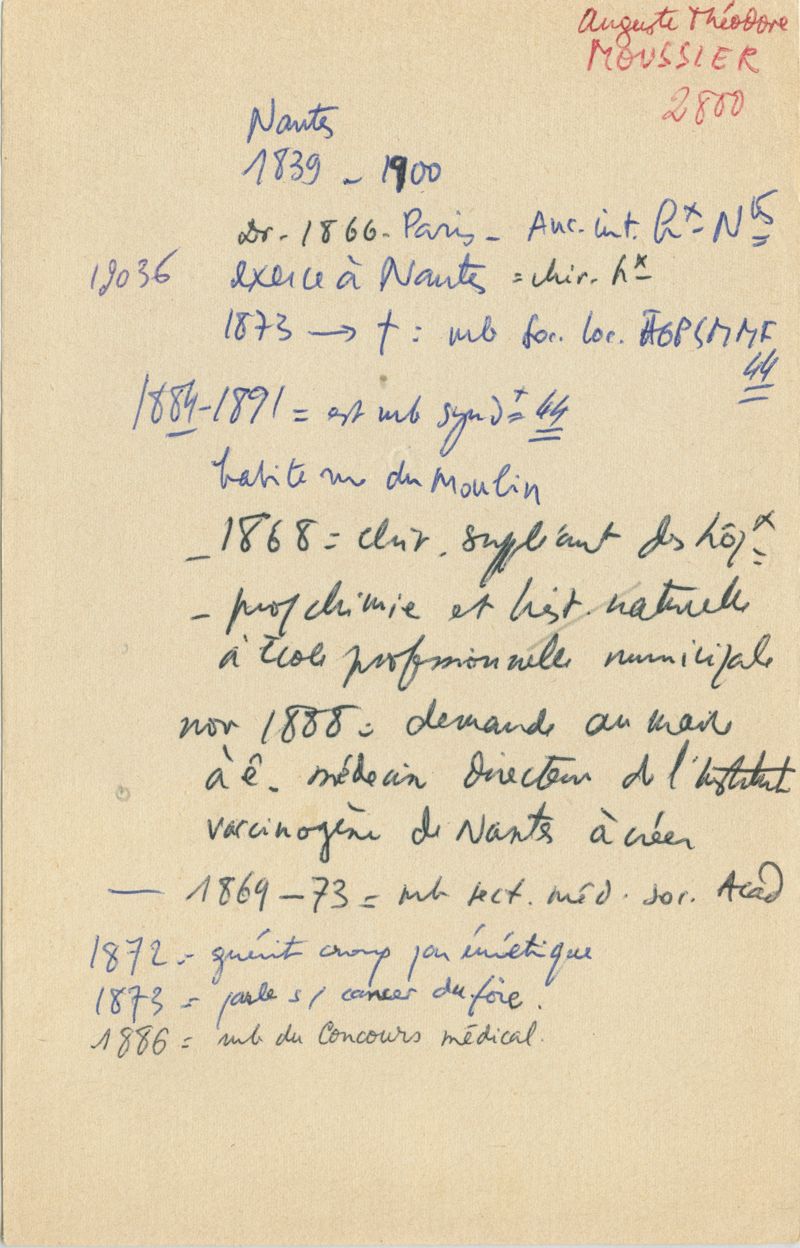 Auguste Théodore
MOUSSIER
2800
Nantes
1839 - 1900
Dr - 1866 - Paris - Anc. int. hx - Ntes
exerce à Nantes = chir. hx
1873 → † : mb Soc. loc. AGPSMMF
44
1884-1891 = est mb syndt 44
habite rue du Moulin
- 1868 = chir. suppléant des hôpx
- prof chimie et hist. naturelle
à Ecole professionnelle municipale
nov 1888 = demande au maire
à ê. médecin directeur de l'Institut
vaccinogène de Nantes à créer
— 1869-73 = mb sect. méd. soc. Acad
1872 = guérit croup par émétique
1873 = parle s/ cancer du foie.
1886 = mb du Concours médical.